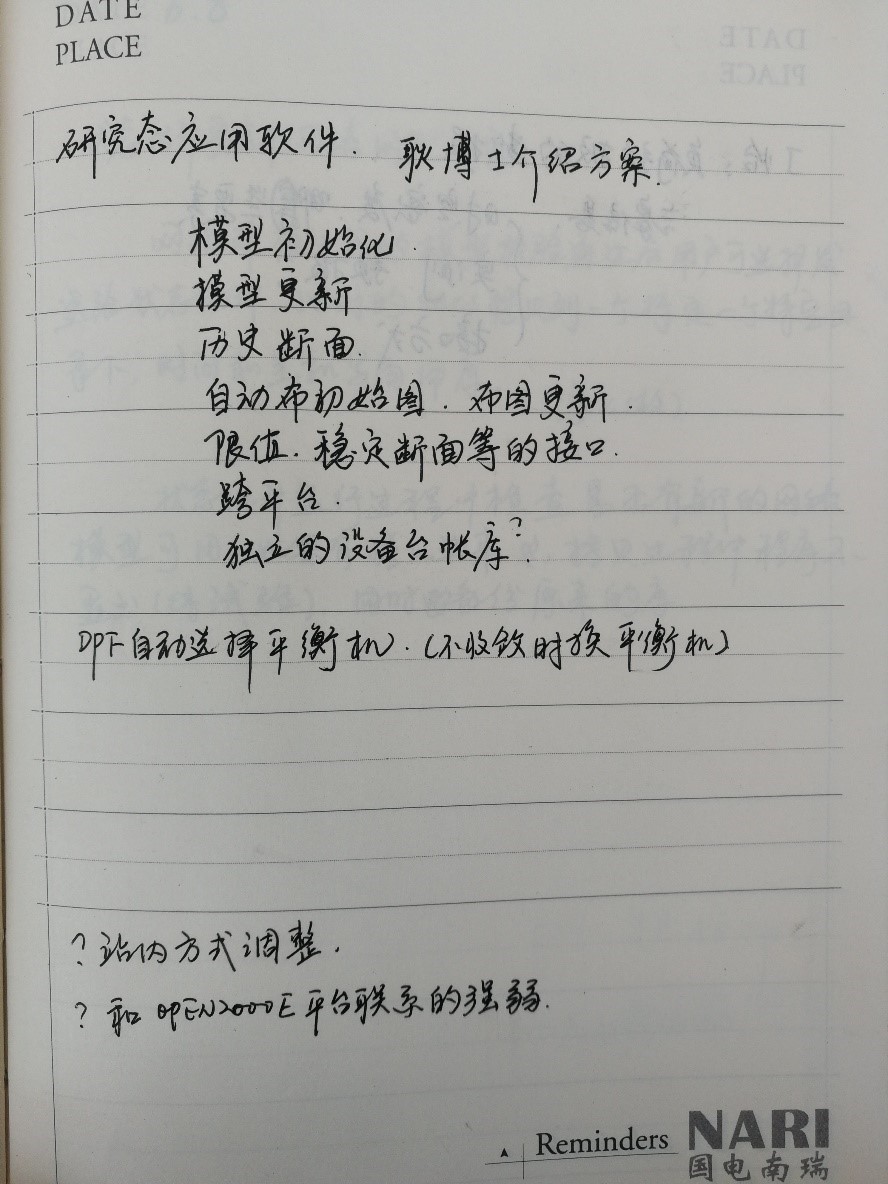 DATE
PLACE
研究态应用软件. 耿博士介绍方案.
模型初始化.
模型更新
历史断面.
自动布初始图. 布图更新.
限值. 稳定断面等的接口.
跨平台.
独立的设备台帐库?
DPF自动选择平衡机. (不收敛时换平衡机)
? 站内方式调整.
? 和OPEN2000E平台联系的强弱.
Reminders
NARI
国电南瑞